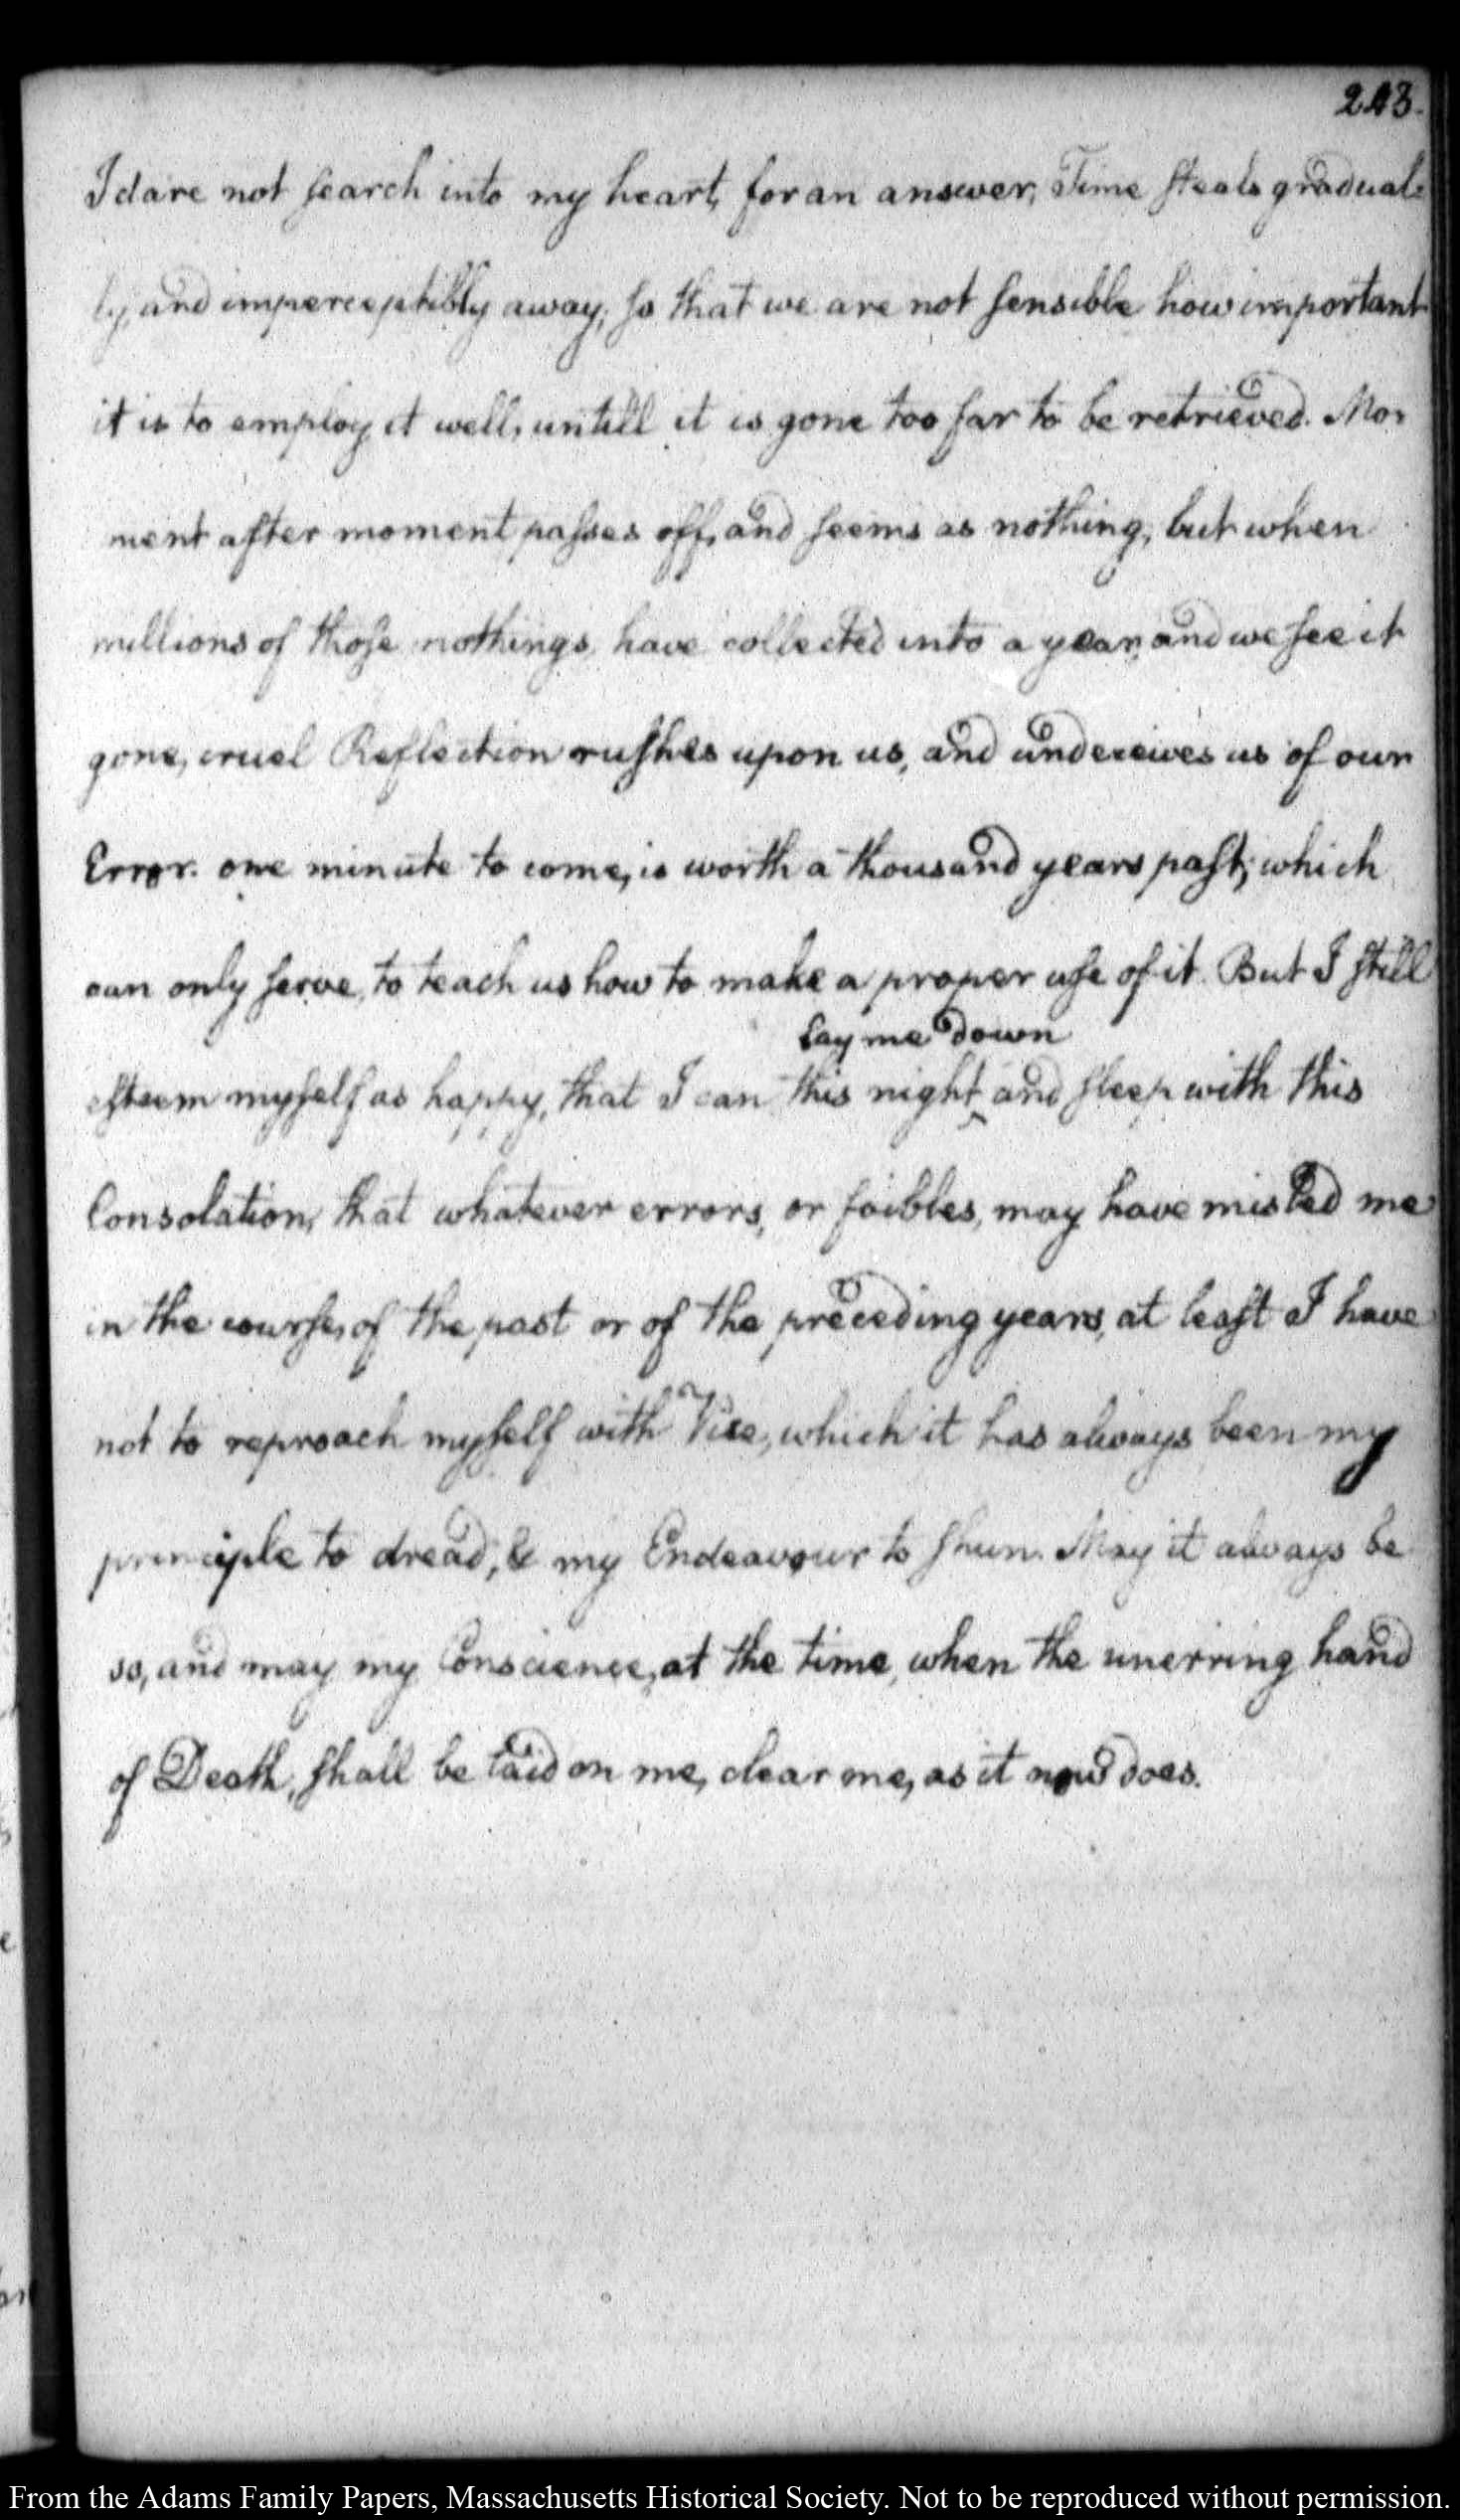 213.
I dare not search into my heart, for an answer, Time steals gradual-
ly, and imperceptibly away, so that we are not sensible how important
it is to employ it well, untill it is gone too far to be retrieved. Mo-
ment after moment passes off, and seems as nothing, but when
millions of those nothings have collected into a year, and we see it
gone, cruel Reflection rushes upon us, and undeceives us of our
Error. one minute to come, is worth a thousand years past, which
can only serve, to teach us how to make a proper use of it. But I still
lay me down
esteem myself as happy, that I can this night ‸ and sleep with this
Consolation, that whatever errors, or foibles, may have misled me
in the course, of the past or of the preceding years, at least I have
not to reproach myself with Vice, which it has always been my
principle to dread, & my Endeavour to shun. May it always be
so, and may my Conscience, at the time, when the unerring hand
of Death, shall be laid on me, clear me, as it now does.
From the Adams Family Papers, Massachusetts Historical Society. Not to be reproduced without permission.